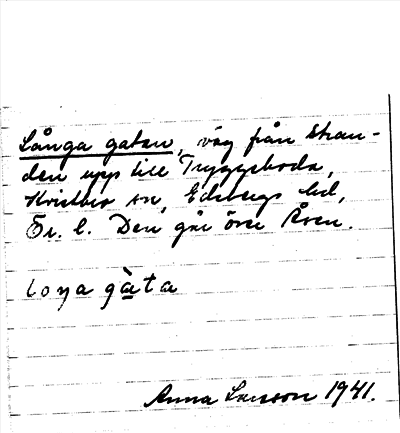 Långa gatan, väg från Stran-
den upp till Tryggeboda,
Kvistbro sn, Edsbergs hd,
Ör. l. Den går över Åsen.
loŋa gàta
Anna Larsson 1941.